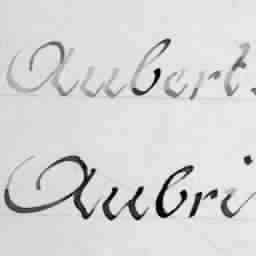 Aubert.
Aubri